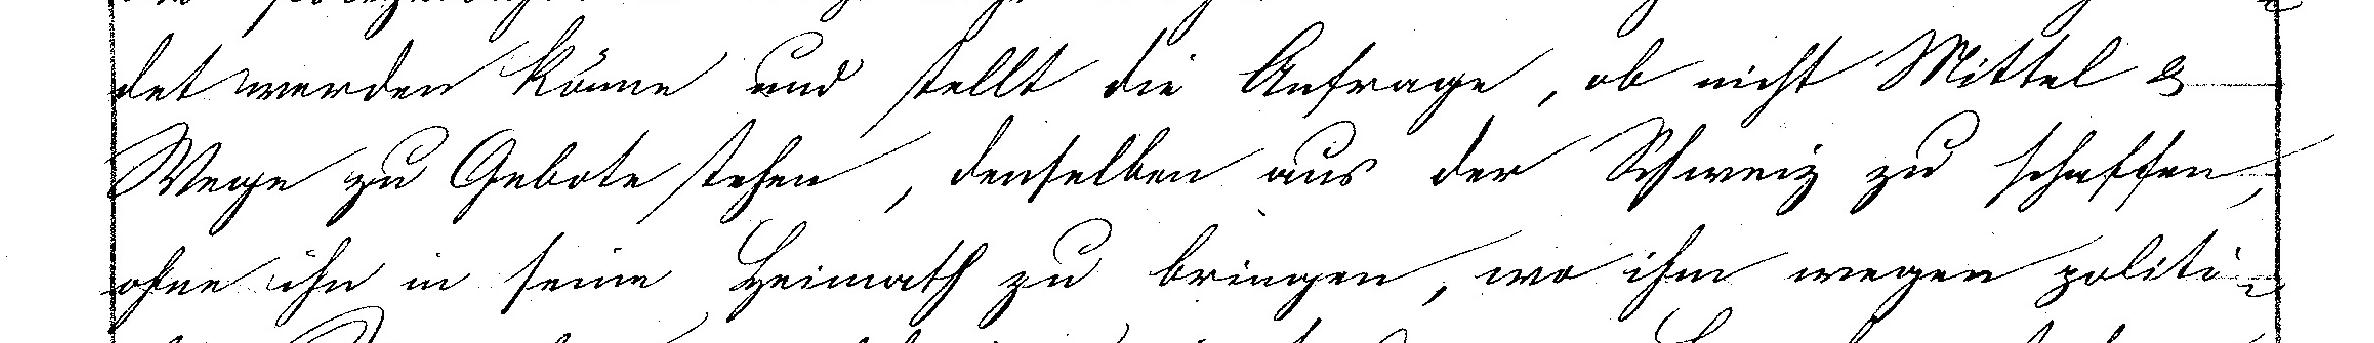 det werden könne und stellt die Anfrage, ob nicht Mittel &
Wege zu Gebote stehen, denselben aus der Schweiz zu schaffen,
ohne ihn in seine Heimath zu bringen, wo ihm wegen politi-